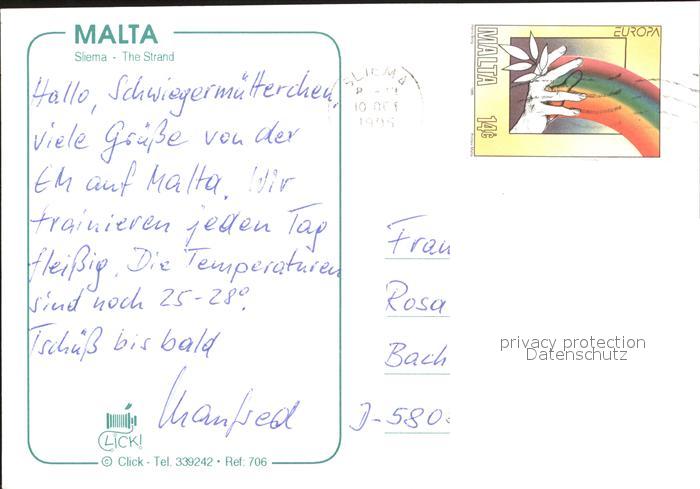 MALTA
Sliema - The Strand
Hallo, Schwiegermütterchen,
viele Grüße von der
EM auf Malta. Wir
trainieren jeden Tag
fleißig. Die Temperaturen
sind noch 25-28°.
Tschüß bis bald
Manfred
CLICK!
© Click - Tel. 339242 • Ref: 706
SLIEMA
10 OCT
1995
EUROPA
MALTA 14c
Frau
Rosa
Bach
D-580
privacy protection
Datenschutz